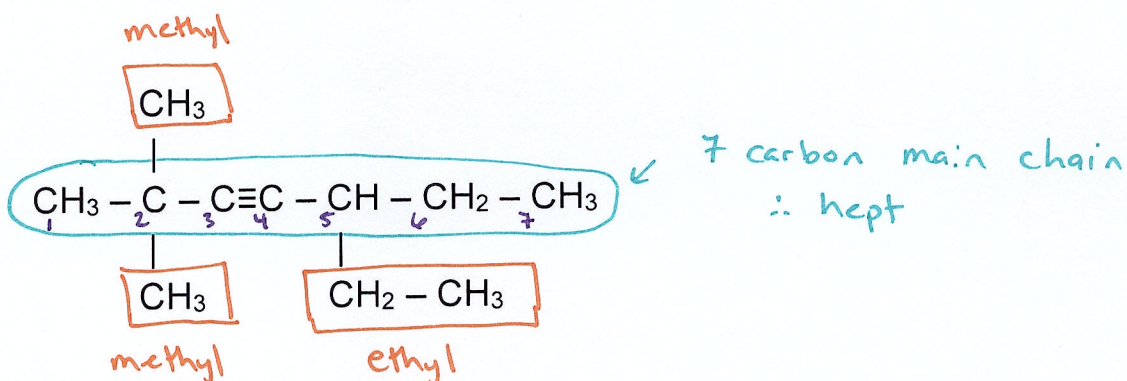 methyl
CH3
CH3 – C – C≡C – CH – CH2 – CH3
1 2 3 4 5 6 7
7 carbon main chain
∴ hept
CH3
CH2 – CH3
methyl
ethyl